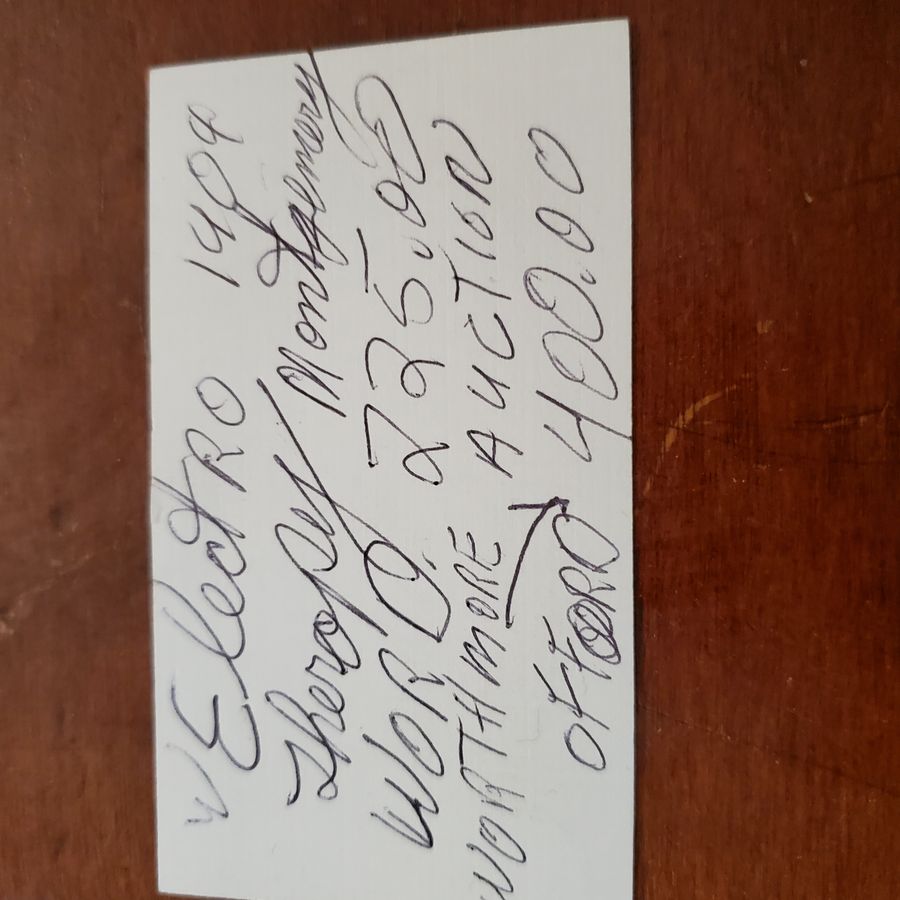 W Electro 1404
Therapy Montgomery
WORLD 225.00
WORTH MORE AUCTION
OFFERD 400.00